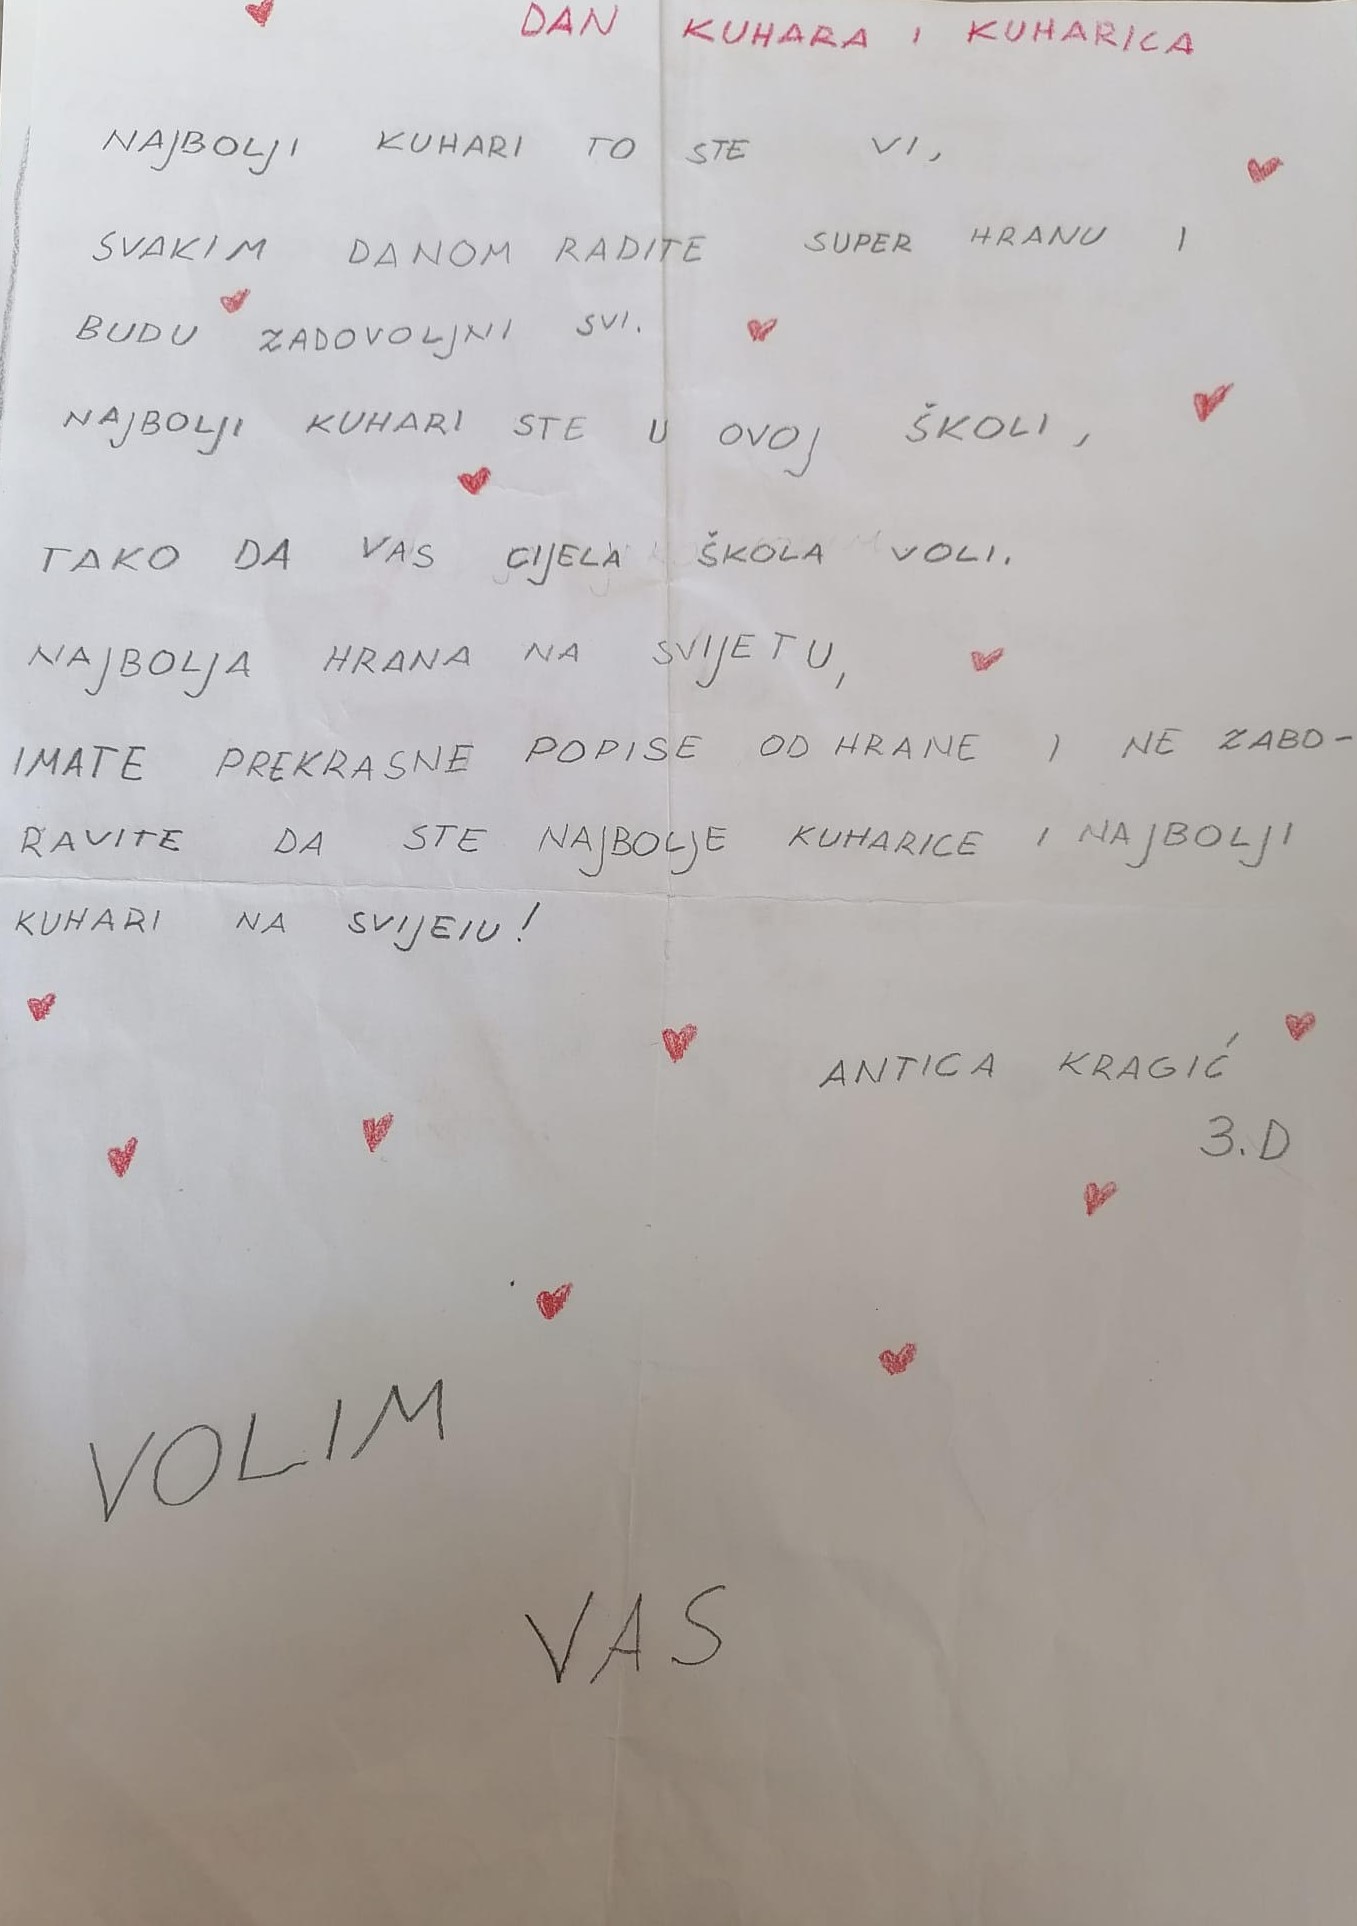 DAN KUHARA I KUHARICA
NAJBOLJI KUHARI TO STE VI,
SVAKIM DANOM RADITE SUPER HRANU I
BUDU ZADOVOLJNI SVI.
NAJBOLJI KUHARI STE U OVOJ ŠKOLI,
TAKO DA VAS CIJELA ŠKOLA VOLI.
NAJBOLJA HRANA NA SVIJETU,
IMATE PREKRASNE POPISE OD HRANE I NE ZABO-
RAVITE DA STE NAJBOLJE KUHARICE I NAJBOLJI
KUHARI NA SVIJETU!
ANTICA KRAGIĆ
3.D
VOLIM
VAS